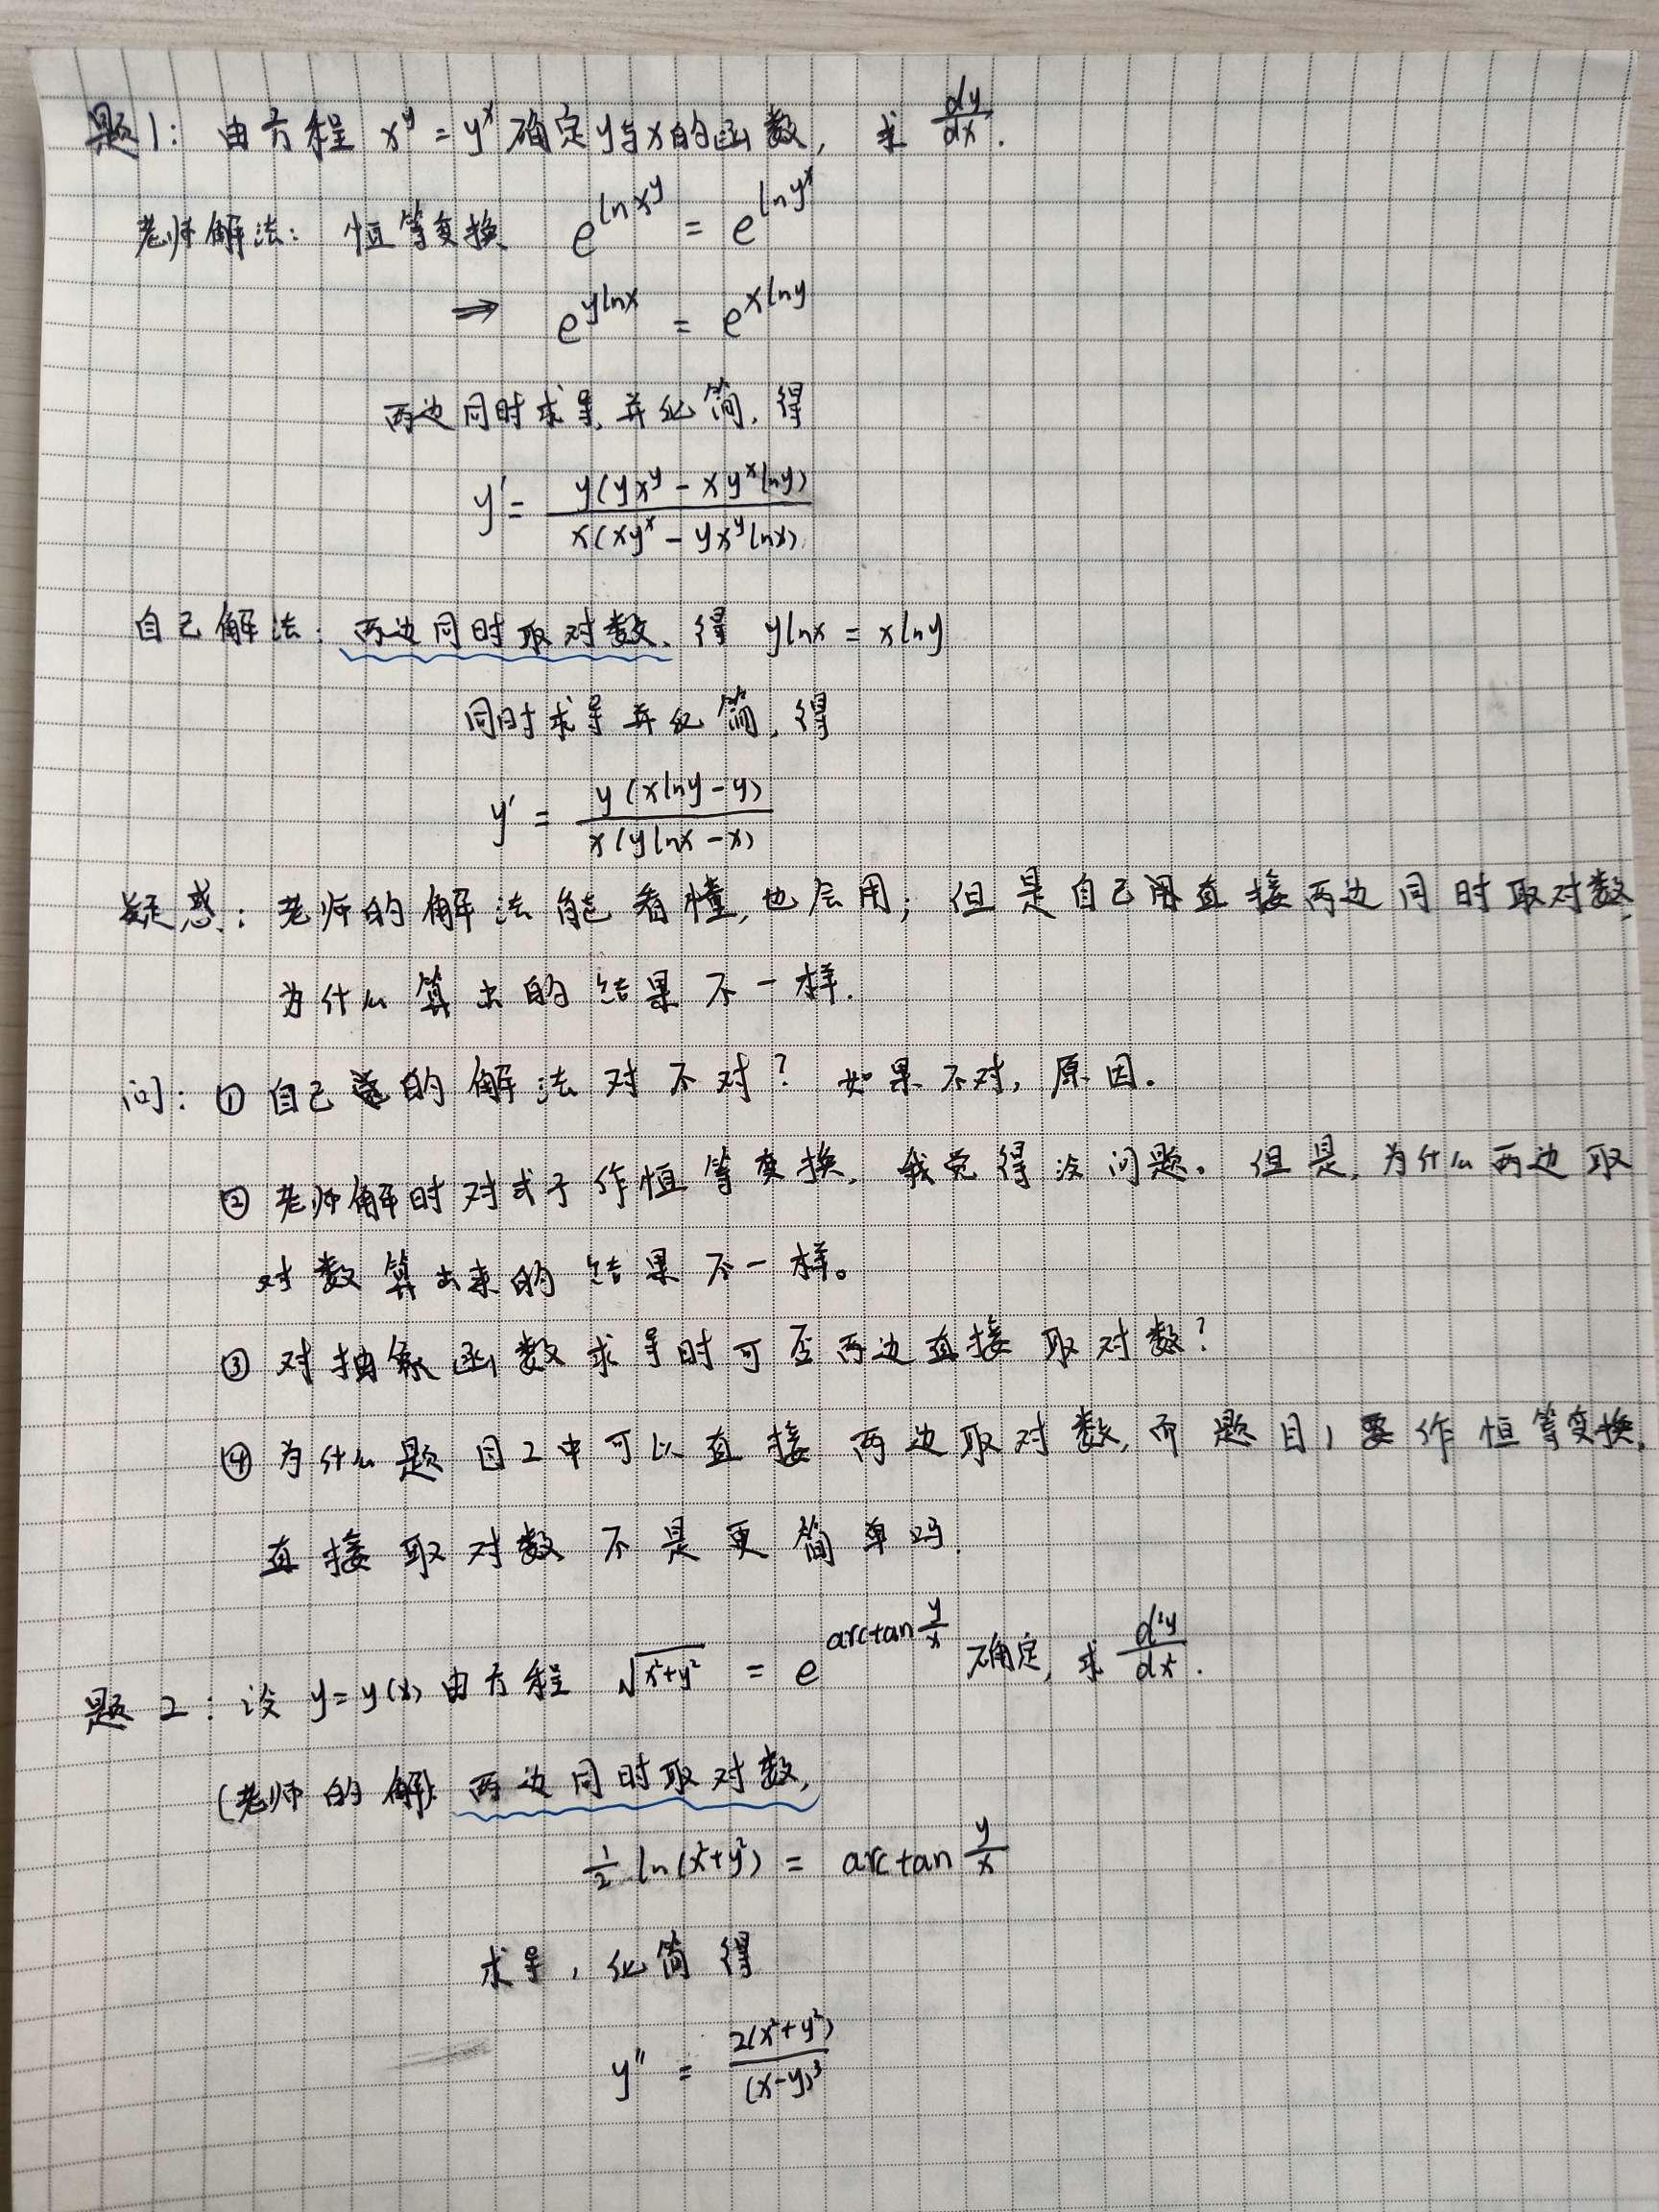 题1: 由方程 x^y = y^x 确定y与x的函数, 求 dy/dx.
老师解法: 恒等变换 e^{lnx^y} = e^{lny^x}
⇒ e^{ylnx} = e^{xlny}
两边同时求导并化简, 得
y' = y(yx^y - xy^xlny) / x(xy^x - yx^ylnx)
自己解法: 两边同时取对数, 得 ylnx = xlny
同时求导并化简, 得
y' = y(xlny-y) / x(ylnx-x)
疑惑: 老师的解法能看懂, 也会用; 但是自己用直接两边同时取对数,
为什么算出的结果不一样.
问: ① 自己的解法对不对? 如果不对, 原因.
② 老师解时对式子作恒等变换, 我觉得没问题。但是, 为什么两边取
对数算出来的结果不一样。
③ 对抽象函数求导时可否两边直接取对数?
④ 为什么题目2中可以直接两边取对数, 而题目1要作恒等变换,
直接取对数不是更简单吗.
题2: 设 y=y(x) 由方程 √(x²+y²) = e^{arctan y/x} 确定, 求 d²y/dx².
(老师的解): 两边同时取对数,
1/2 ln(x²+y²) = arctan y/x
求导, 化简得
y'' = 2(x²+y²) / (x-y)³